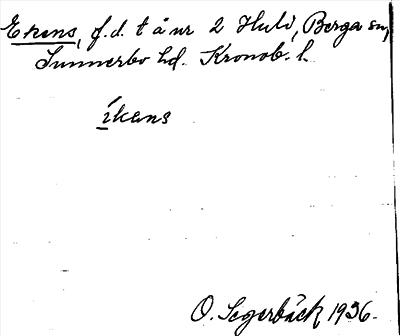 Ekens, f.d. t å nr 2 Hult, Berga sn,
Sunnerbo hd. Kronob. l.
íkens
O. Segerbäck 1936.